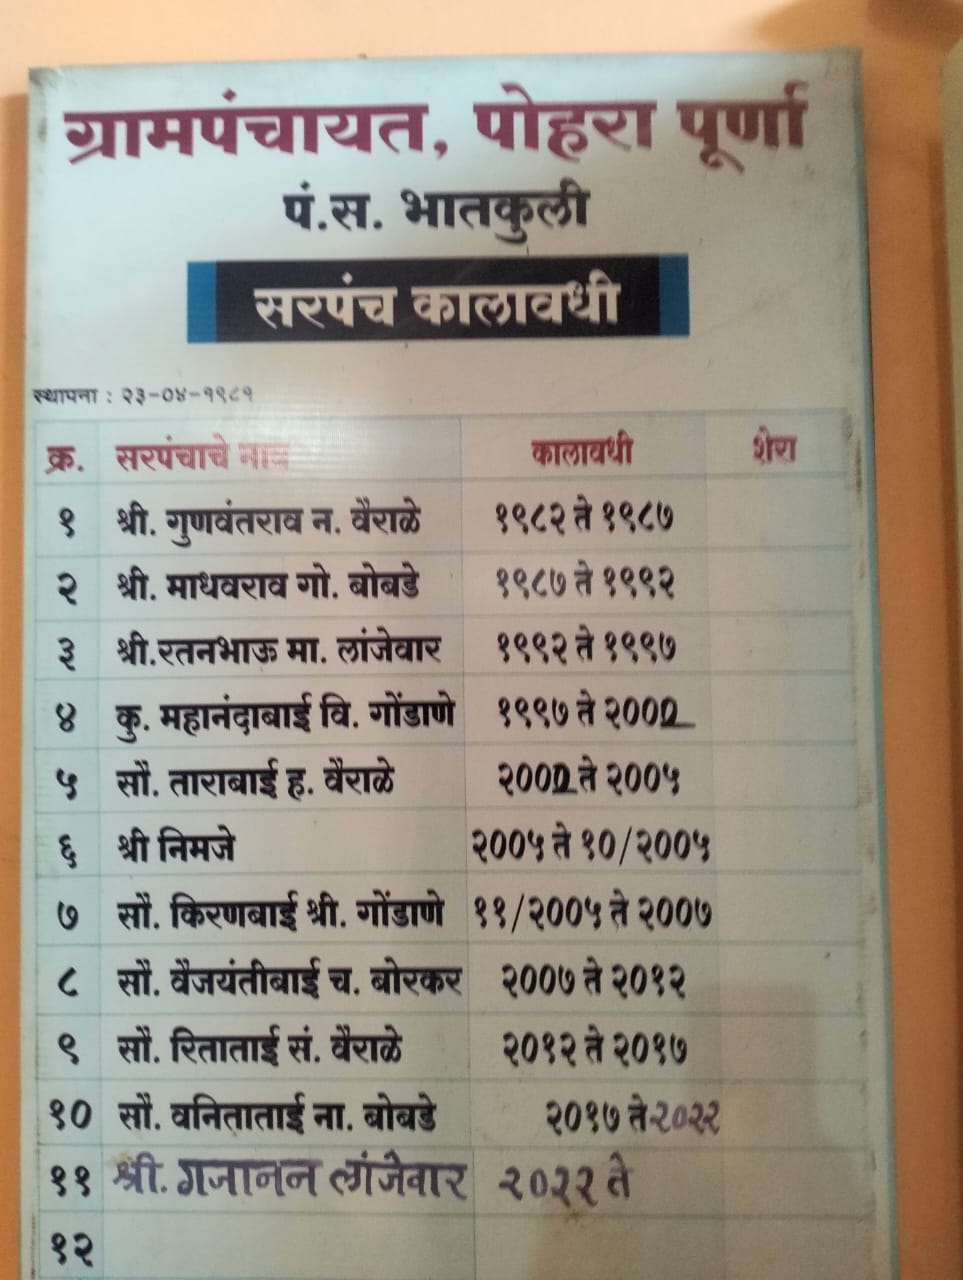 ग्रामपंचायत, पोहरा पूर्णा
पं.स. भातकुली
सरपंच कालावधी
स्थापना : २३-०४-१९८१
क्र. सरपंचाचे नाव कालावधी शेरा
१ श्री. गुणवंतराव न. वैराळे १९८२ ते १९८७
२ श्री. माधवराव गो. बोबडे १९८७ ते १९९२
३ श्री.रतनभाऊ मा. लांजेवार १९९२ ते १९९७
४ कु. महानंदाबाई वि. गोंडाणे १९९७ ते २००२
५ सौ. ताराबाई ह. वैराळे २००२ ते २००५
६ श्री निमजे २००५ ते १०/२००५
७ सौ. किरणबाई श्री. गोंडाणे ११/२००५ ते २००७
८ सौ. वैजयंतीबाई च. बोरकर २००७ ते २०१२
९ सौ. रिताताई सं. वैराळे २०१२ ते २०१७
१० सौ. वनिताताई ना. बोबडे २०१७ ते २०२२
११ श्री. गजानन लांजेवार २०२२ ते
१२